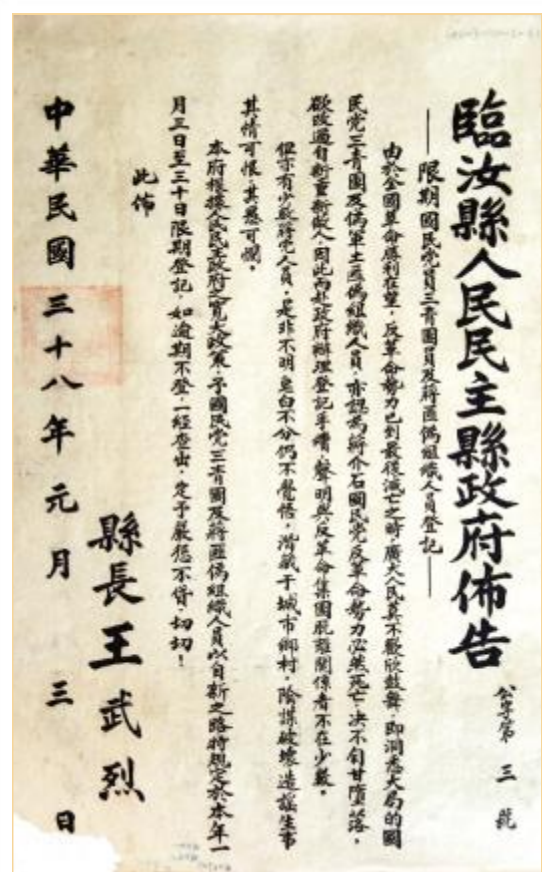 臨汝縣人民民主縣政府佈告
公字第三號
——限期國民党員三青團員及蔣匪偽組織人員登記——
由於全國革命勝利在望，反革命勢力已到最後滅亡之時，廣大人民莫不歡欣鼓舞，即洞悉大局的國
民党三青團及偽軍土匪偽組織人員，亦認為蔣介石國民党反革命勢力必然死亡，决不自甘墮落，
欲改過自新重新做人，因此而赴政府辦理登記手續，聲明與反革命集團脱離關係者不在少數。
但亦有少数蔣党人員，是非不明皂白不分仍不覺悟，潜藏于城市鄉村，陰謀破壞造謡生事
其情可恨，其愚可憫。
本府根據人民民主政府之寬大政策，予國民党三青團及蔣匪偽組織人員以自新之路特規定於本年一
月三日至三十日限期登記，如逾期不登，一經查出，定予嚴懲不貸，切切！
此佈
縣長王武烈
中華民國三十八年元月三日